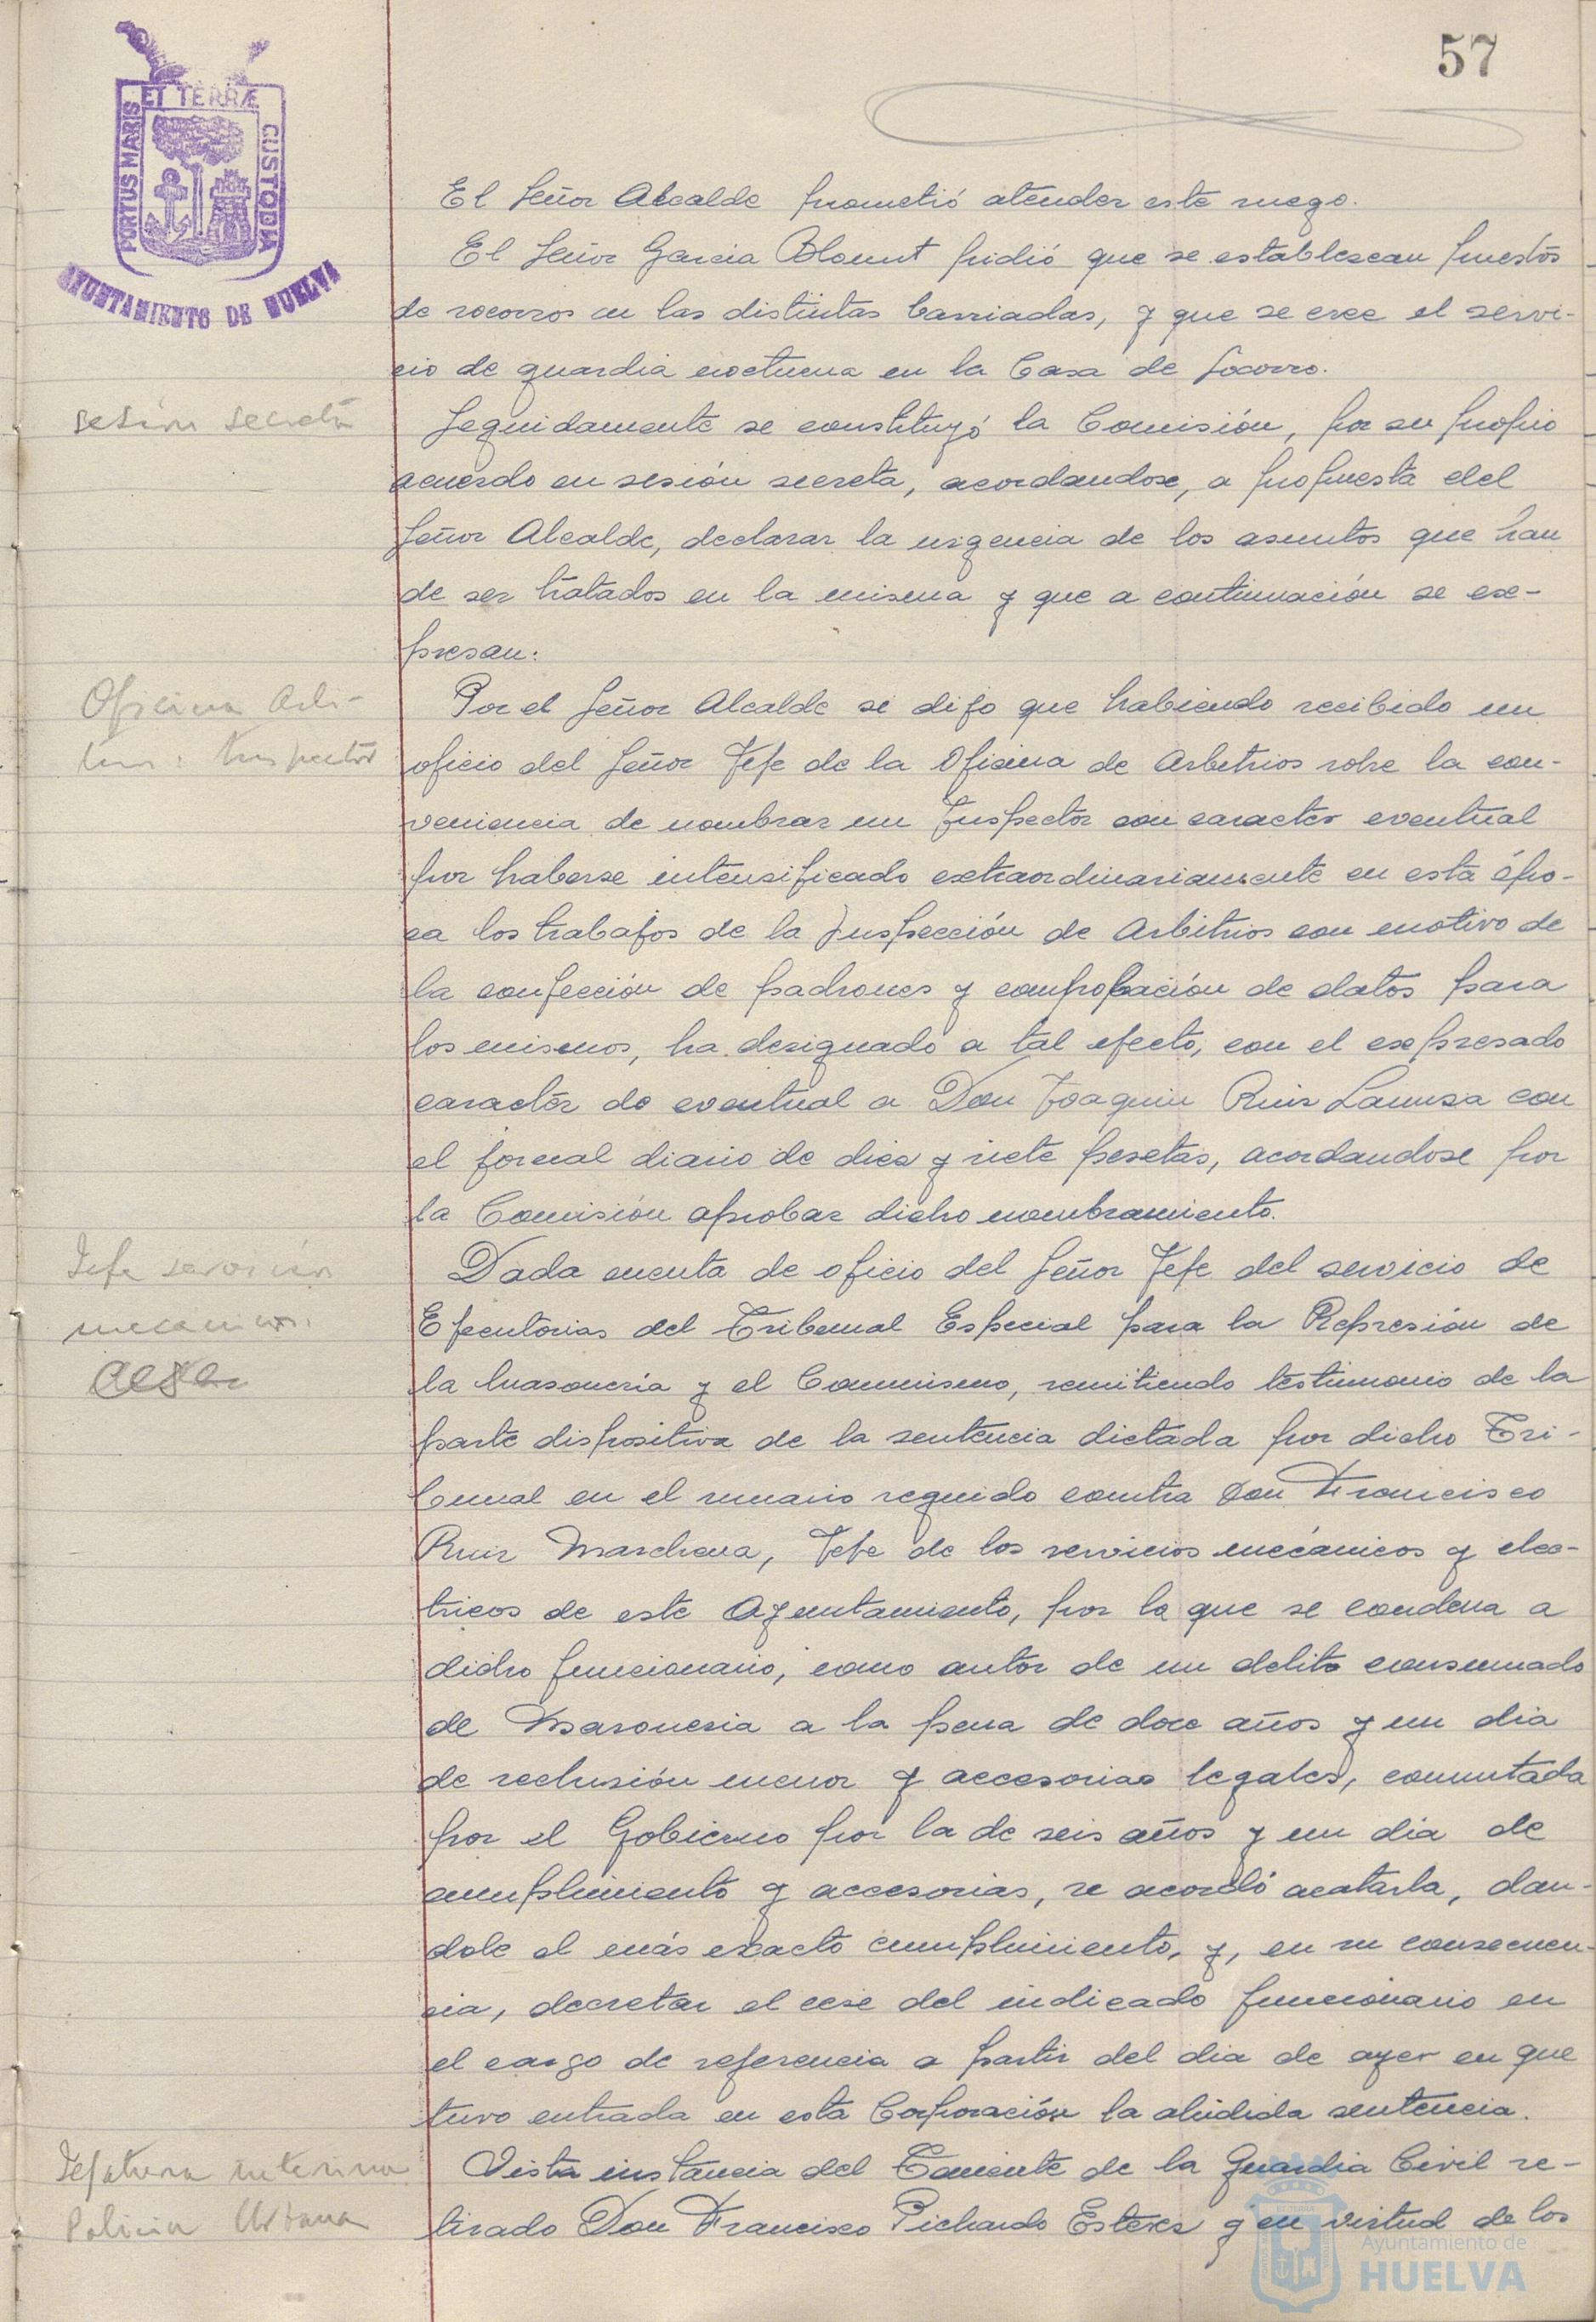 57
PORTUS MARIS ET TERRÆ CUSTODIA
AYUNTAMIENTO DE HUELVA
El Señor Alcalde prometió atender este ruego.
El Señor Garcia Blount pidió que se establezcan puestos
de socorros en las distintas barriadas, y que se cree el servi-
cio de guardia nocturna en la Casa de Socorro.
sesión secreta
Seguidamente se constituyó la Comisión, por su propio
acuerdo en sesión secreta, acordandose, a propuesta del
Señor Alcalde, declarar la urgencia de los asuntos que han
de ser tratados en la misma y que a continuación se ex-
presan:
Oficina Arbi-
trios: Inspector
Por el Señor Alcalde se dijo que habiendo recibido un
oficio del Señor Jefe de la Oficina de Arbitrios sobre la con-
veniencia de nombrar un Inspector con caracter eventual
por haberse intensificado extraordinariamente en esta épo-
ca los trabajos de la Inspección de Arbitrios con motivo de
la confección de padrones y comprobación de datos para
los mismos, ha designado a tal efecto, con el expresado
caractér de eventual a Don Joaquin Ruiz Lamusa con
el jornal diario de diez y siete pesetas, acordandose por
la Comisión aprobar dicho nombramiento.
Jefe servicios
mecanicos:
Cese
Dada cuenta de oficio del Señor Jefe del servicio de
Ejecutorias del Tribunal Especial para la Represión de
la Masonería y el Comunismo, remitiendo testimonio de la
parte dispositiva de la sentencia dictada por dicho Tri-
bunal en el sumario seguido contra Don Francisco
Ruiz Marchena, Jefe de los servicios mecánicos y eléc-
tricos de este Ayuntamiento, por la que se condena a
dicho funcionario, como autor de un delito consumado
de Masoneria a la pena de doce años y un dia
de reclusión menor y accesorias legales, conmutada
por el Gobierno por la de seis años y un dia de
cumplimiento y accesorias, se acordó acatarla, dan-
dole el más exacto cumplimiento, y, en su consecuen-
cia, decretar el cese del indicado funcionario en
el cargo de referencia a partir del dia de ayer en que
tuvo entrada en esta Corporación la aludida sentencia.
Jefatura interina
Policia Urbana
Vista instancia del Teniente de la Guardia Civil re-
tirado Don Francisco Pichardo Esteves y en virtud de los
Ayuntamiento de
HUELVA